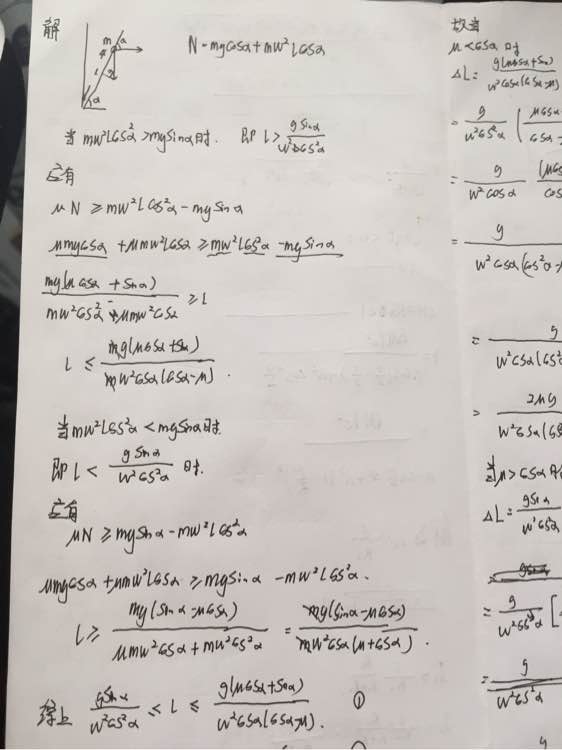 解
m
α
l
α
N = mgcosα + mw²lcosα
当 mw²lcos²α > mgsinα时. 即 l > gsinα/w²cos²α
应有
μN ≥ mw²lcos²α - mgsinα
μmgcosα + μmw²lcosα ≥ mw²lcos²α - mgsinα
mg(μcosα + sinα)/mw²cos²α - μmw²cosα ≥ l
l ≤ mg(μcosα + sinα)/mw²cosα(cosα-μ).
当mw²lcos²α < mgsinα时.
即 l < gsinα/w²cos²α 时.
应有
μN ≥ mgsinα - mw²lcos²α
μmgcosα + μmw²lcosα ≥ mgsinα - mw²lcos²α.
l ≥ mg(sinα - μcosα)/μmw²cosα + mw²cos²α = mg(sinα - μcosα)/mw²cosα(μ+cosα).
综上 gsinα/w²cos²α ≤ l ≤ g(μcosα+sinα)/w²cosα(cosα-μ). ①
故当
μ < cosα 时
ΔL = g(μcosα+sinα)/w²cosα(cosα-μ)
= g/w²cos²α ( μcosα/cosα-
= g/w²cosα (μcos/cos
= g/w²cosα(cos²α-
= g/w²cosα(cos²
= 2μg/w²cosα(cos
当μ > cosα 时
ΔL = gsinα/w²cos²α
= g/w²cos²α [
= g/w²cos²α